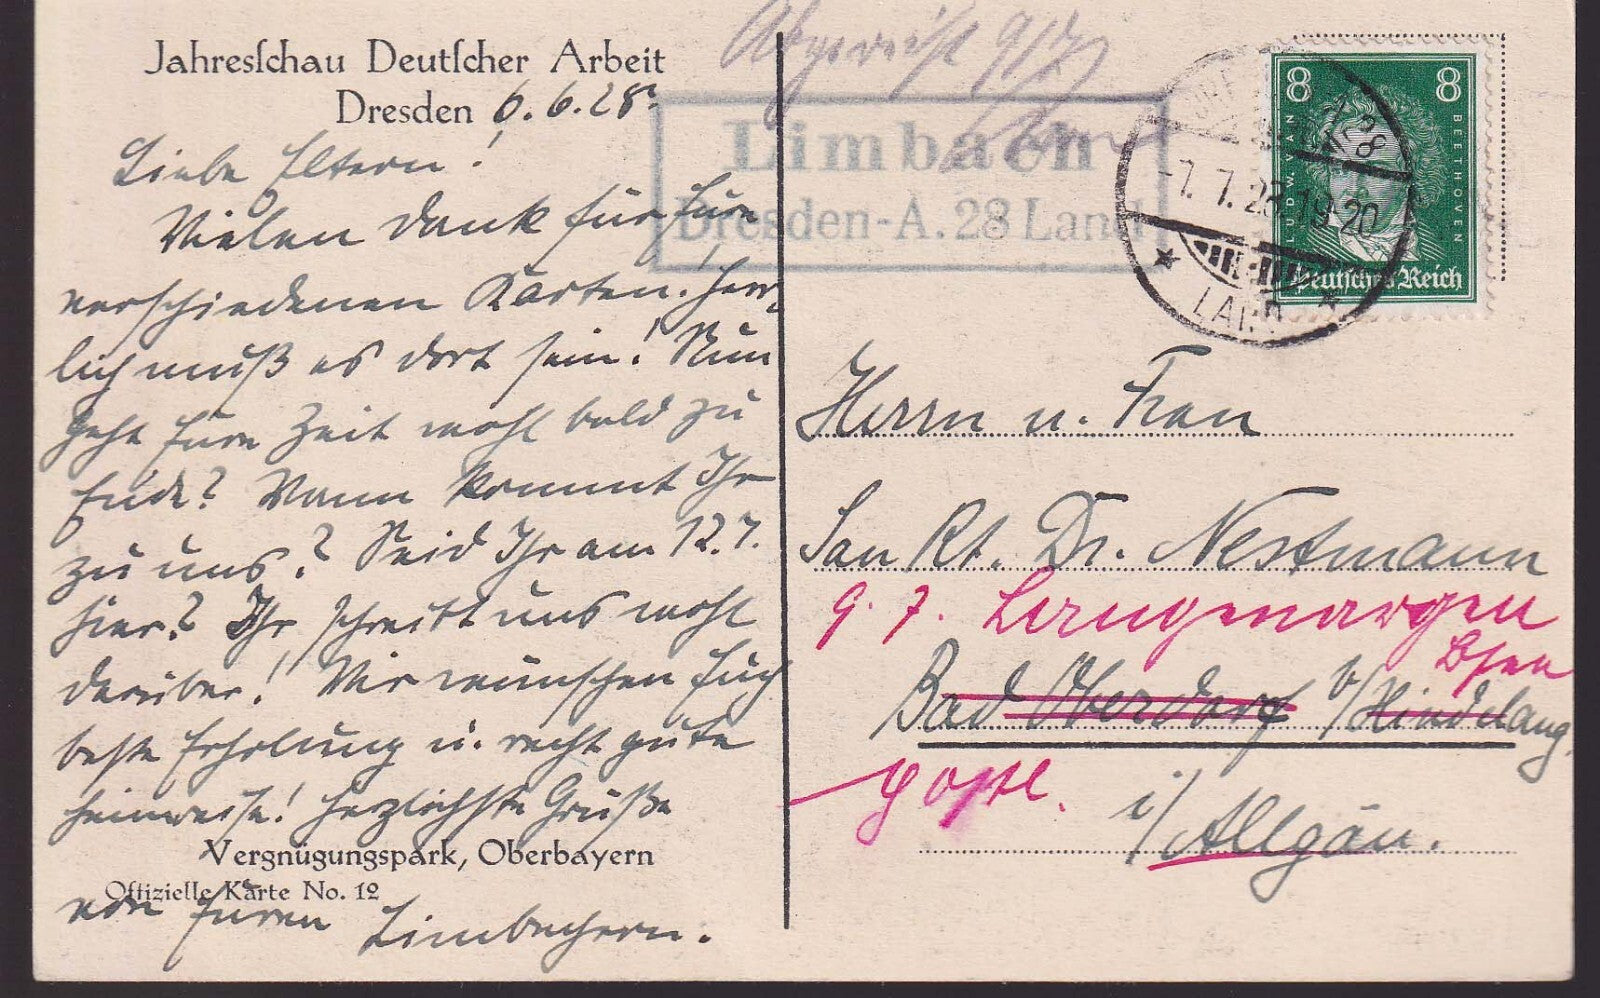 Jahresschau Deutscher Arbeit
Dresden 6.6.28.
Liebe Eltern!
Vielen Dank für Eure
verschiedenen Karten! Herr-
lich muß es dort sein! Nun
geht Eure Zeit wohl bald zu
Ende? Wann kommt Ihr
zu uns? Seid Ihr am 12.7.
hier? Ihr schreibt uns wohl
darüber! Wir wünschen Euch
beste Erholung u. recht gute
Heimreise! Herzlichste Grüße
Vergnügungspark, Oberbayern
Offizielle Karte No. 12
von Euren Limbachern.
Abgereist 9/7
Limbach
Dresden-A. 28 Land
-7. 7. 28. 19-20
LAND
8 8
LUDW. VAN BEETHOVEN
Deutsches Reich
Herrn u. Frau
San Rt. Dr. Nestmann
9. 7. Langenargen
Bad Oberdorf b/Hindelang
i/Allgäu.